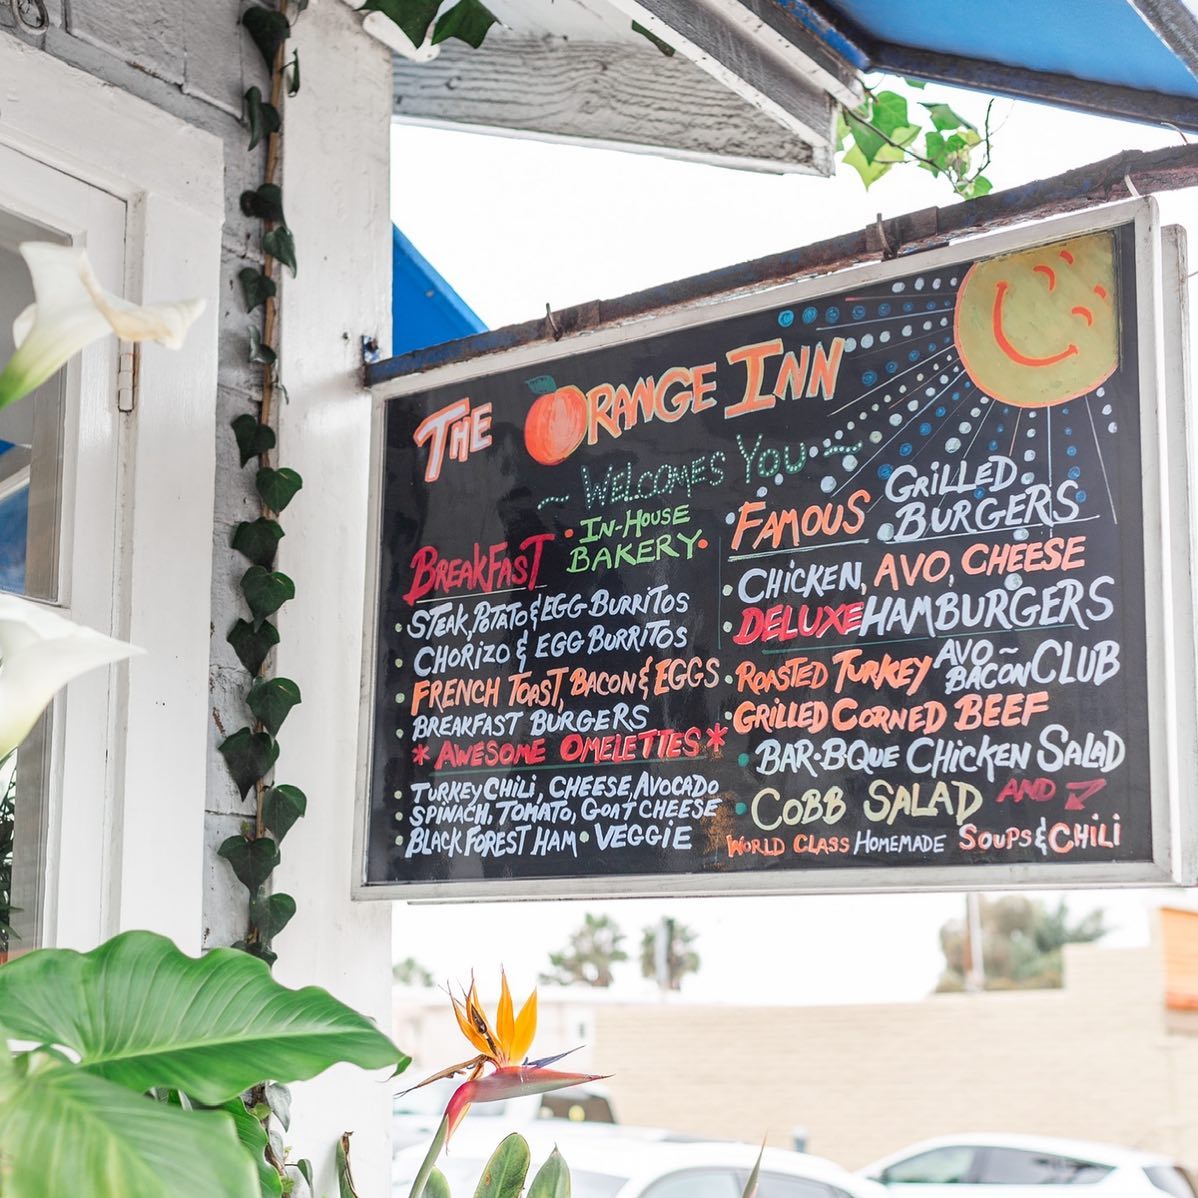 THE ORANGE INN
~ WELCOMES YOU ~
BREAKFAST
• IN-HOUSE
BAKERY •
• STEAK, POTATO & EGG BURRITOS
• CHORIZO & EGG BURRITOS
• FRENCH TOAST, BACON & EGGS
• BREAKFAST BURGERS
* AWESOME OMELETTES *
• TURKEY CHILI, CHEESE, AVOCADO
SPINACH, TOMATO, GOAT CHEESE
• BLACK FOREST HAM • VEGGIE
• FAMOUS GRILLED
BURGERS
• CHICKEN, AVO, CHEESE
• DELUXE HAMBURGERS
• ROASTED TURKEY AVO~
BACON CLUB
• GRILLED CORNED BEEF
• BAR-BQUE CHICKEN SALAD
• COBB SALAD AND
WORLD CLASS HOMEMADE SOUPS & CHILI